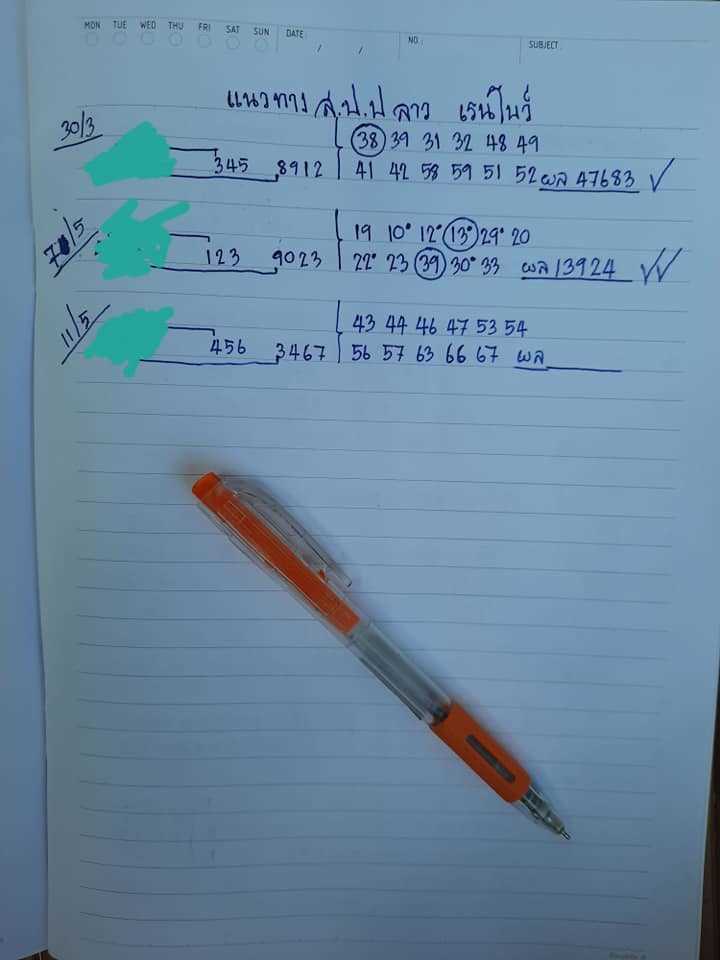 MON TUE WED THU FRI SAT SUN DATE: / / NO.: SUBJECT:
แนวทาง ส.ป.ป ลาว เรนโบว์
30/3 38 39 31 32 48 49
345 8912 41 42 58 59 51 52 ผล 47683 ✓
7/5 19 10° 12° 13° 29° 20
123 9023 22° 23 39 30° 33 ผล 13924 ✓✓
11/5 43 44 46 47 53 54
456 3467 56 57 63 66 67 ผล